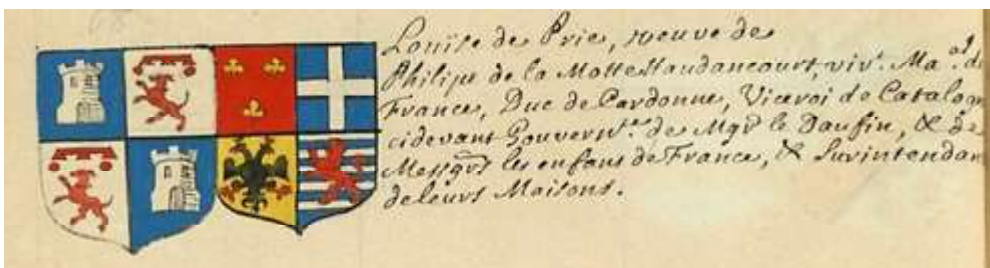 Louise de Prie, veuve de
Philipe de la Motte Haudancourt, viv.t Ma.al de
France, Duc de Cardonne, Viceroi de Catalogn
cidevant Gouvern.te de Mgr. le Daufin, & de
Messgrs les enfans de France, & Surintendan
de leurs Maisons.